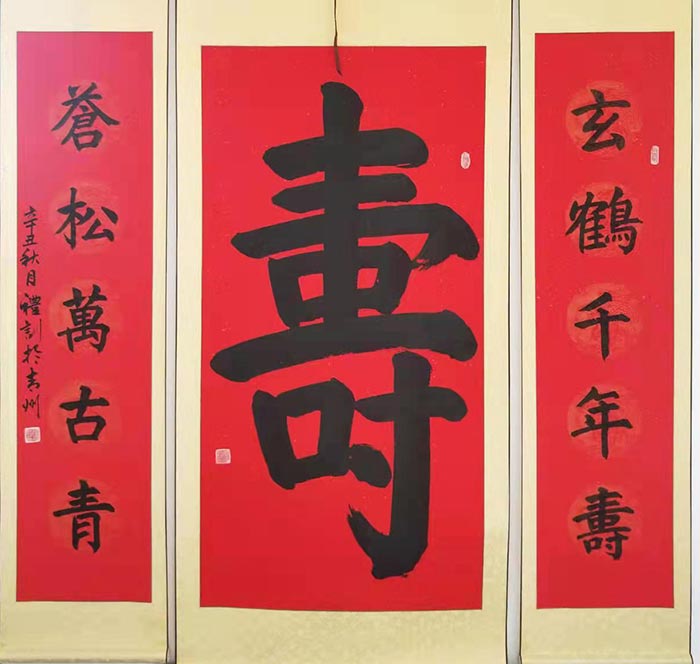 玄鶴千年壽
壽
蒼松萬古青
辛丑秋月禮訓於青州